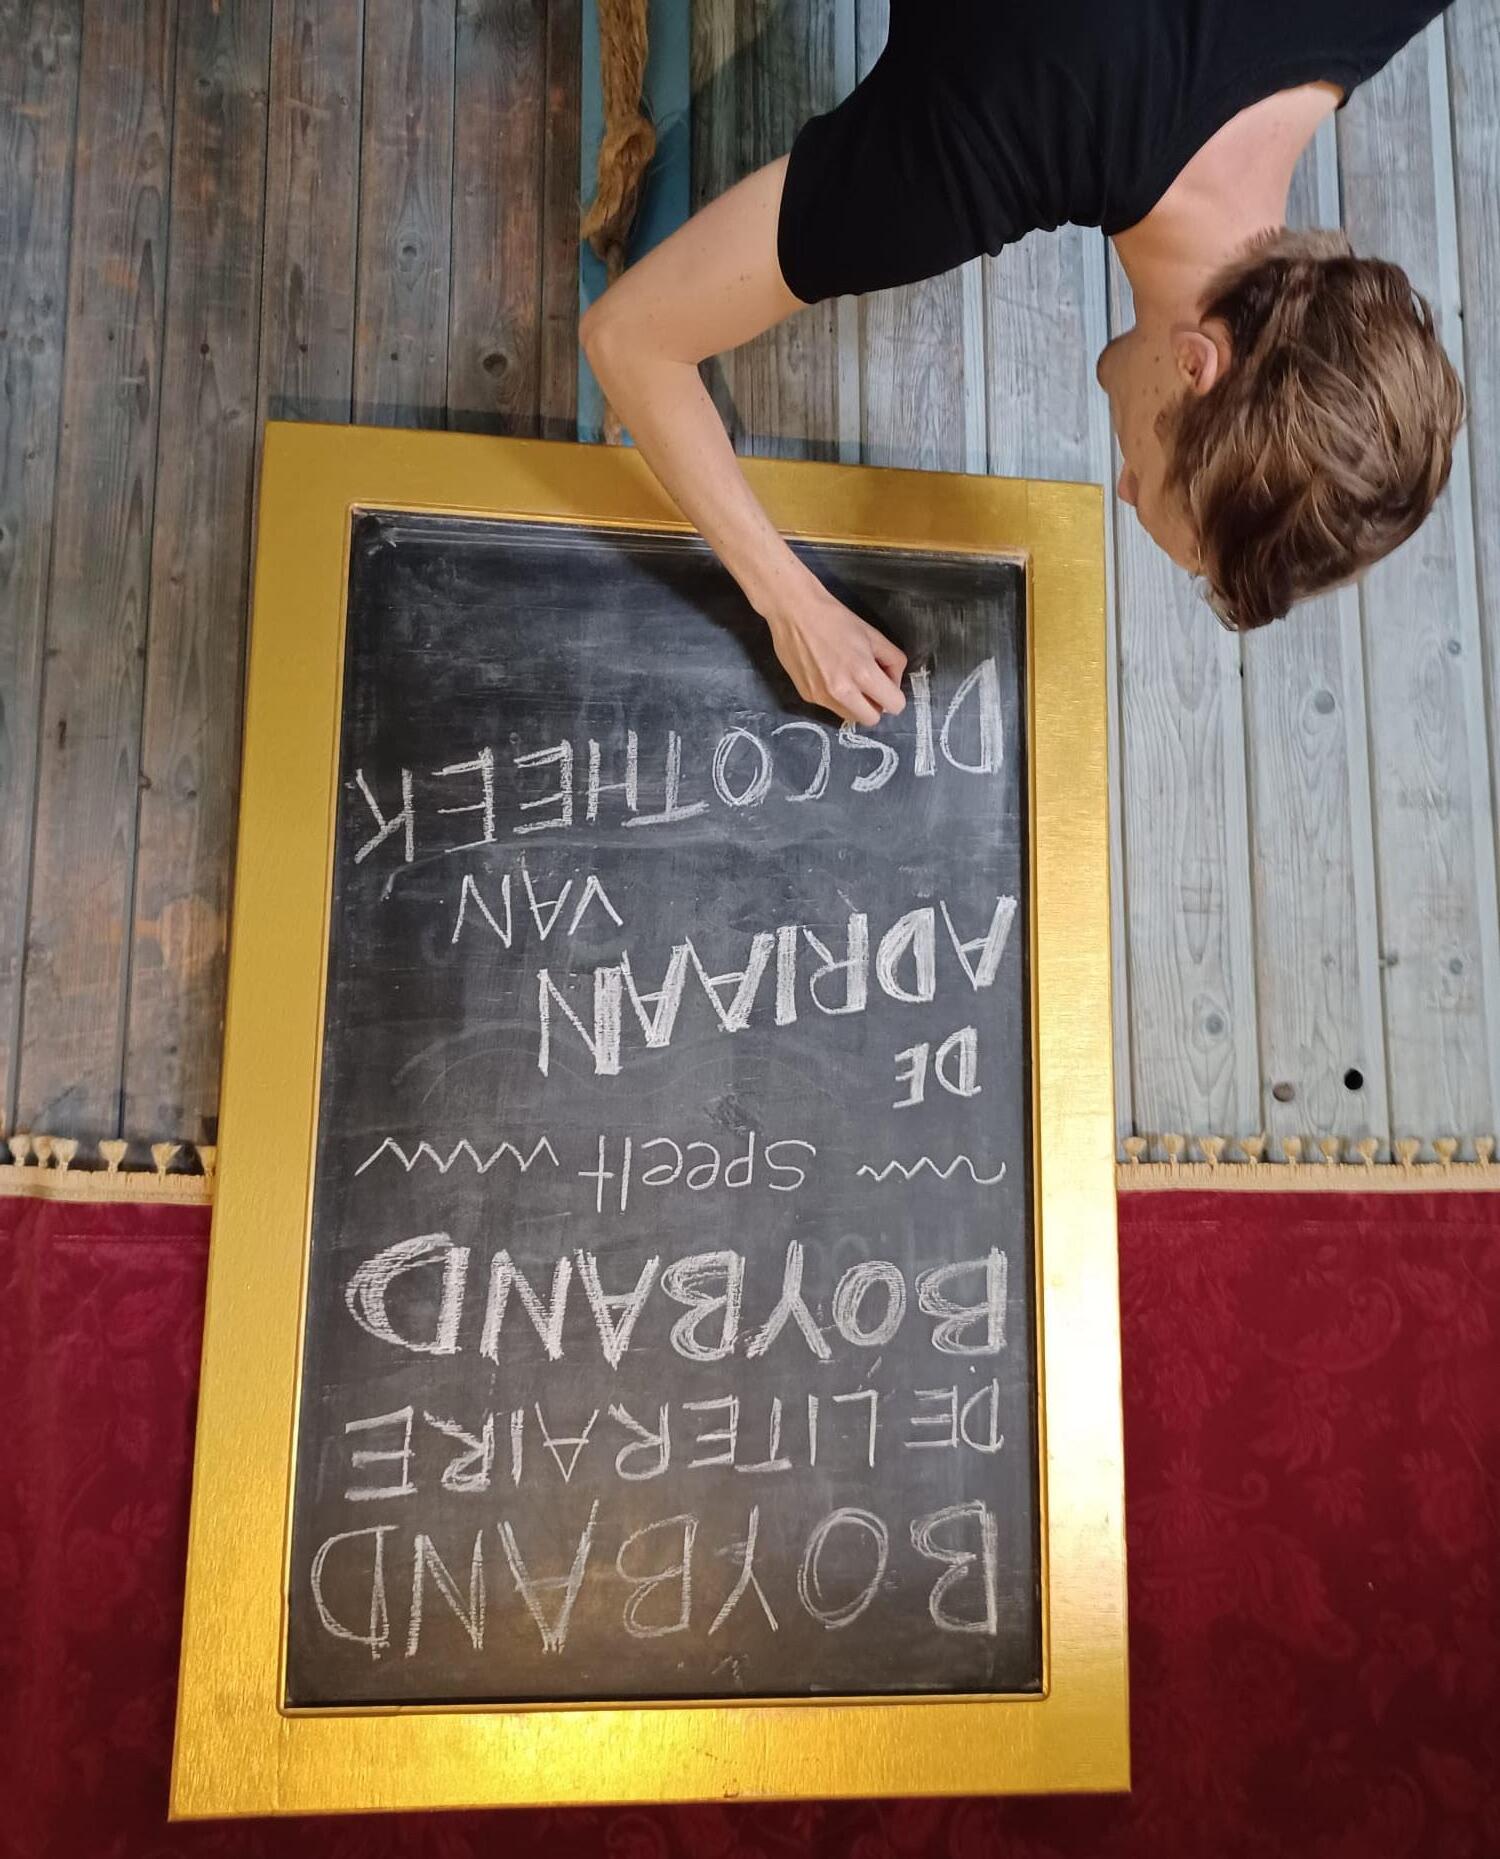 BOYBAND
DE LITERAIRE
BOYBAND
speelt
DE
ADRIAAN
VAN
DISCOTHEEK